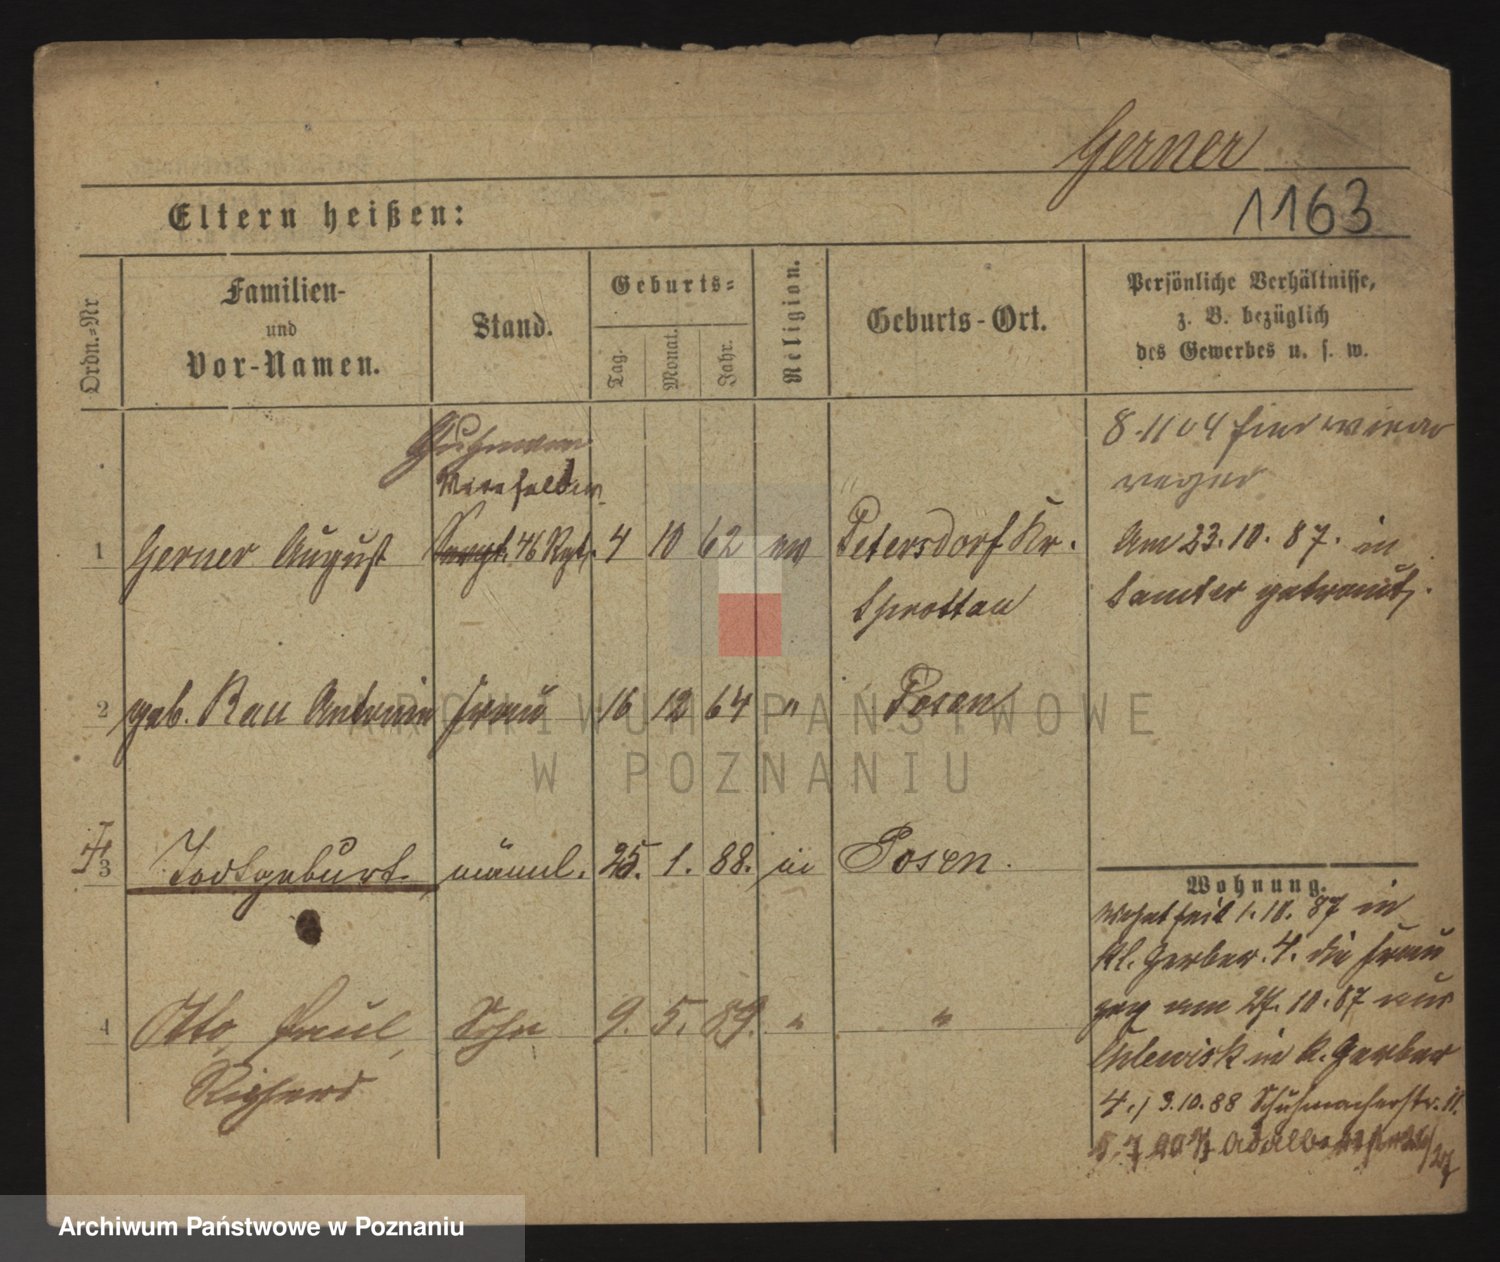 Gerner
1163
Eltern heißen:
Ordn.-Nr
Familien-
und
Vor-Namen.
Stand.
Geburts-
Tag.
Monat.
Jahr.
Religion.
Geburts-Ort.
Persönliche Verhältnisse,
z. B. bezüglich
des Gewerbes u. s. w.
8.11 04
1 Gerner August Sergt. 46 Rgt. 4 10 62 ev Petersdorf Kr.
Sprottau
Am 23.10.87. in
Samter getraut.
2 geb. Rau Antonie Frau 16 12 64 " Posen
3 Todtgeburt. männl. 25. 1. 88. in Posen.
4 Otto, Paul, Sohn 9. 5. 89. " "
Richard
Wohnung.
Wohnt seit 1.10.87 in
Kl. Gerber. 4. die Frau
zog am 27.10.87 aus
in K. Gerber
4., 3.10.88 Schuhmacherstr. 11.
ARCHIWUM PAŃSTWOWE
W POZNANIU
Archiwum Państwowe w Poznaniu